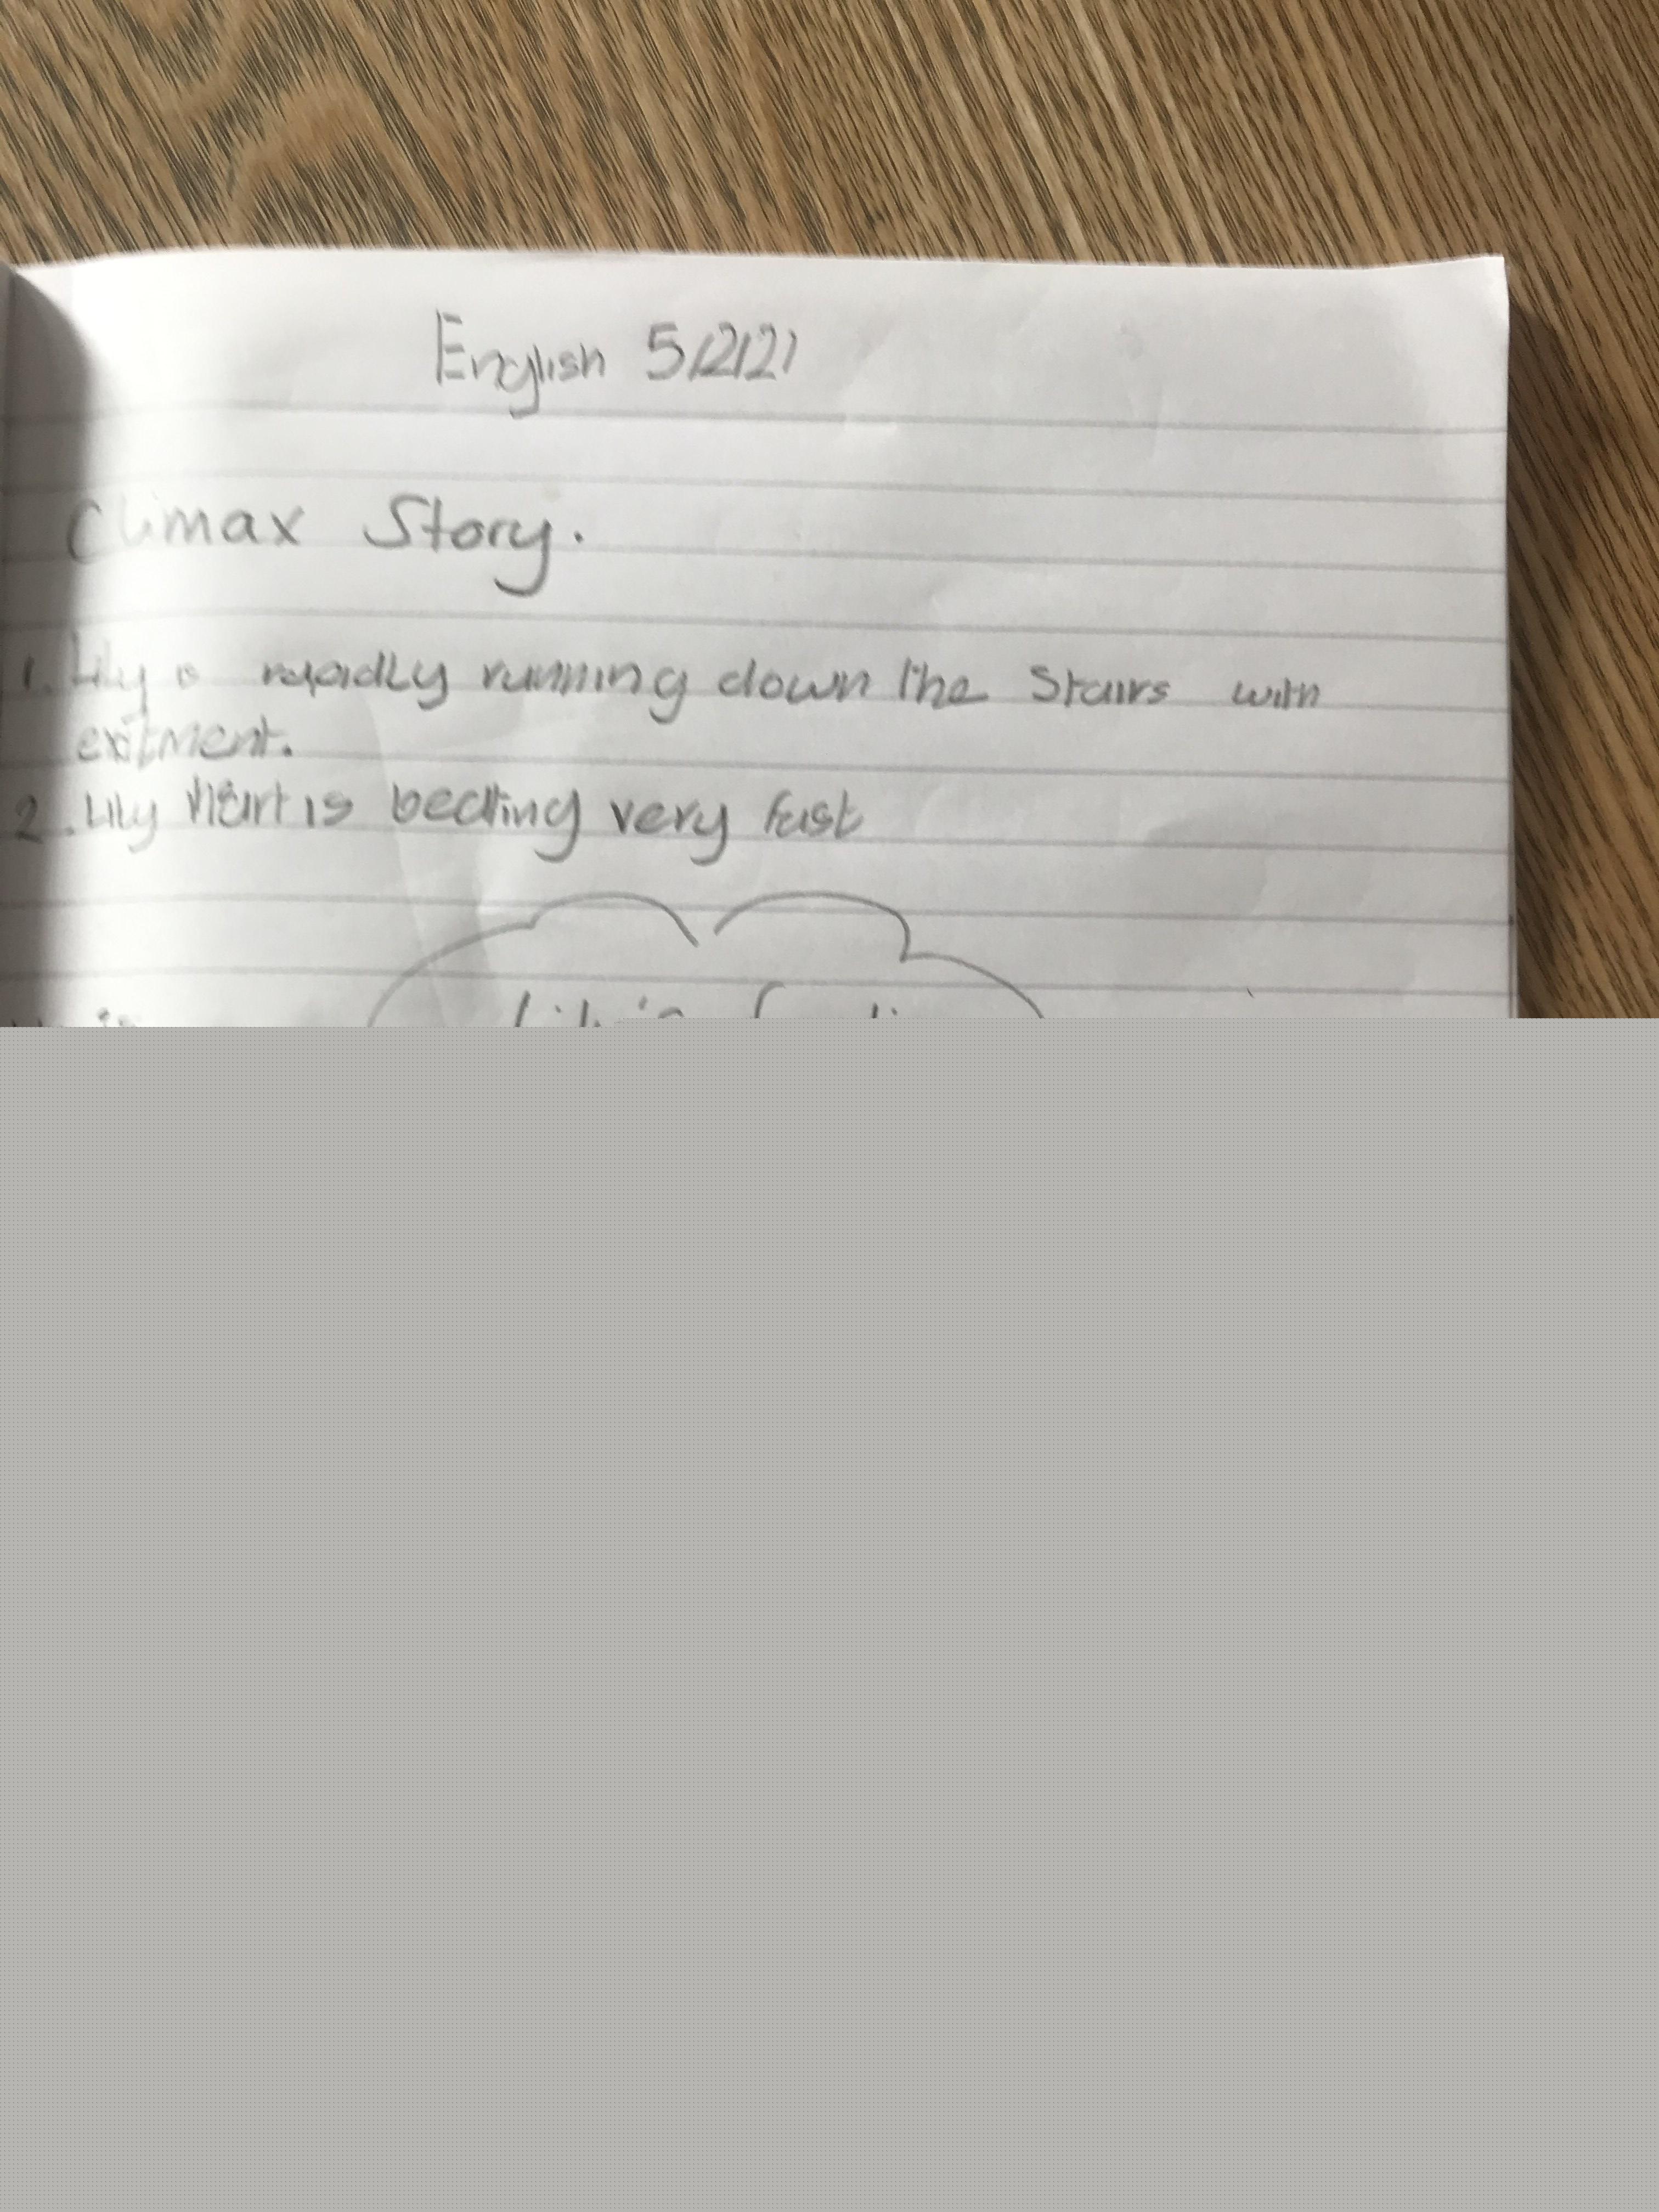 English 5/2/21
Climax Story.
1. Lily is rapadly running down the Stairs with
exitment.
2. Lily Heart is beating very fast
Lily is